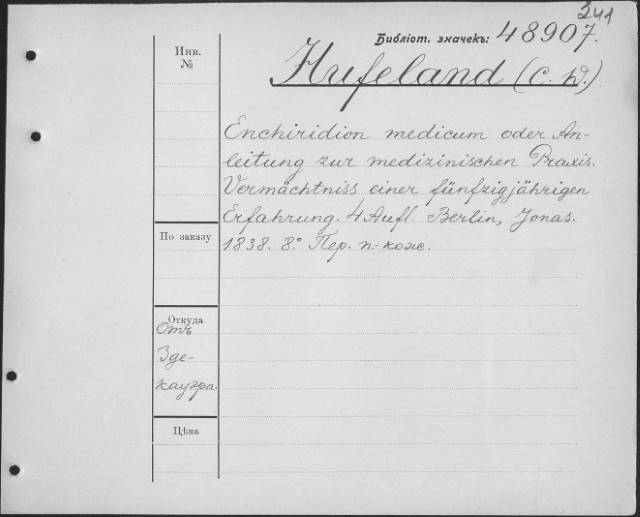 241
Библіот. значекъ: 48907.
Инв.
№
Hufeland (C. W.)
Enchiridion medicum oder An-
leitung zur medizinischen Praxis.
Vermächtniss einer fünfzigjährigen
Erfahrung. 4 Aufl. Berlin, Jonas.
1838. 8.° Пер. п.-кож.
По заказу
Откуда
Отъ
Зде-
кауэра.
Цѣна